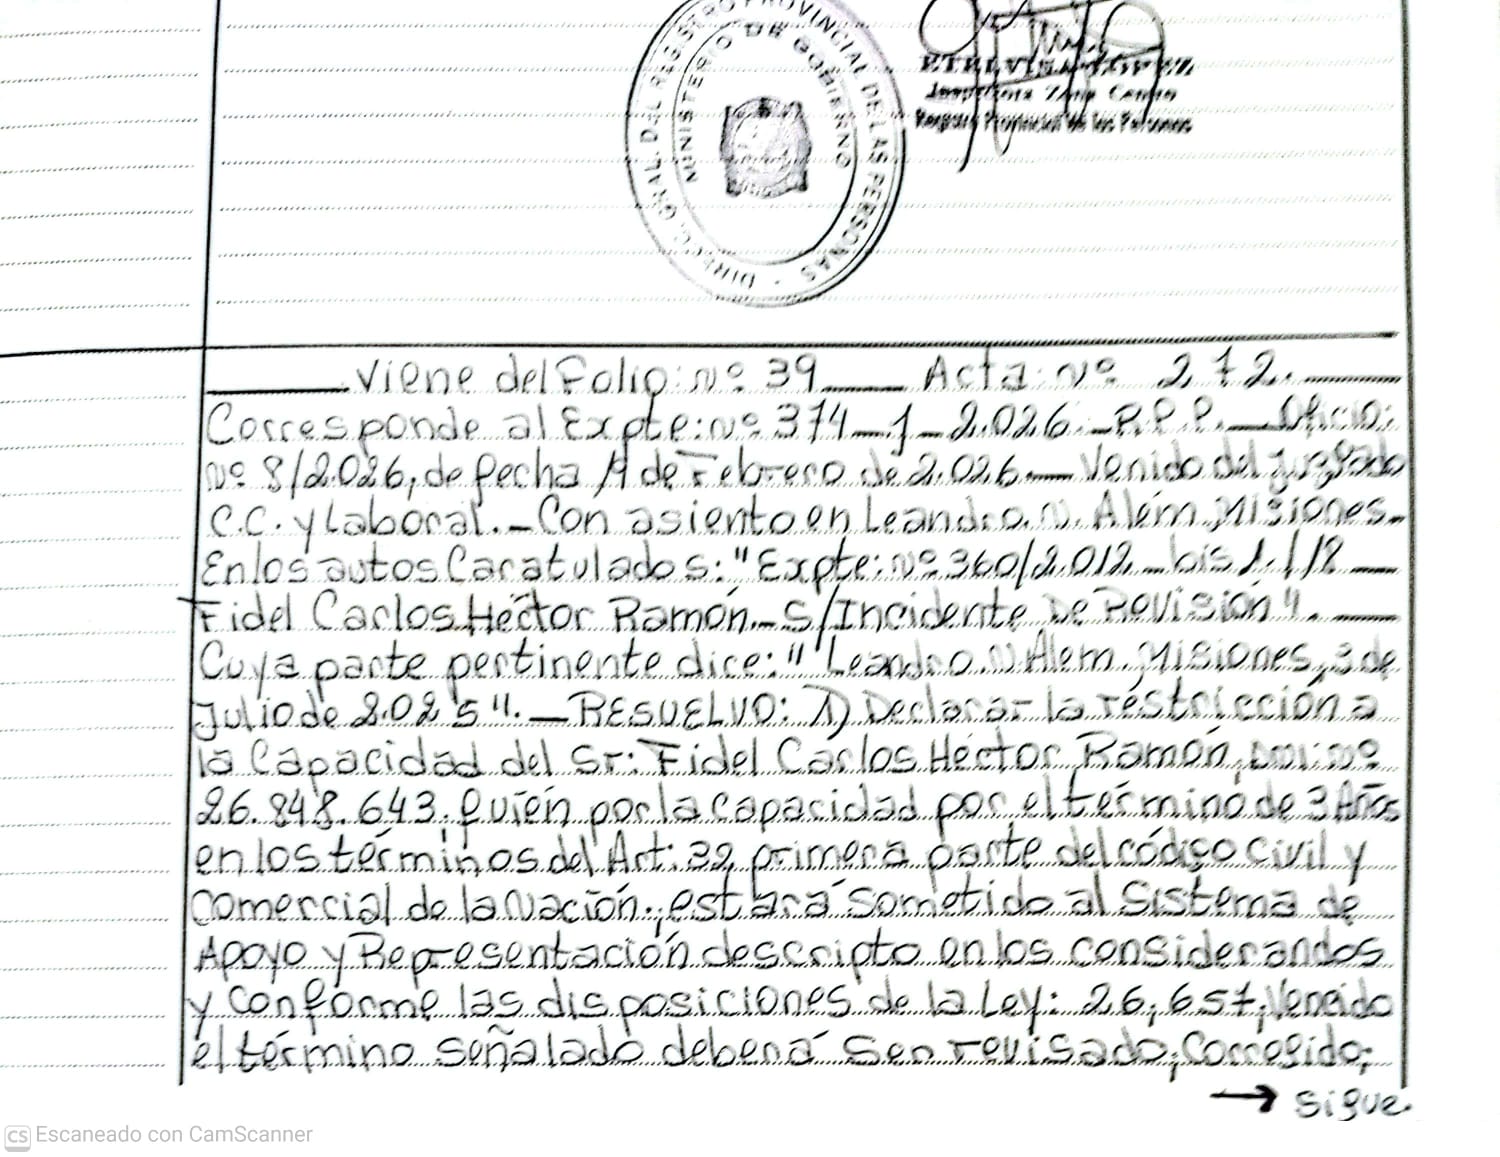 DIRECC. GRAL. DEL REGISTRO PROVINCIAL DE LAS PERSONAS -
MINISTERIO DE GOBIERNO
ETELVINA LOPEZ
Zona Centro
Registro Provincial de las Personas
Viene del Folio: Nº 39 Acta: Nº 272.
Corresponde al Expte: Nº 374-1-2.026. - R.P.P. - Oficio:
Nº 8/2.026, de fecha de Febrero de 2.026.- Venido del Juzgado
C.C. y Laboral.- Con asiento en Leandro. N. Alem. Misiones-
En los autos Caratulados: "Expte: Nº 360/2.012 - bis 1/18 -
Fidel Carlos Héctor Ramón - S/Incidente De Revisión".
Cuya parte pertinente dice: " Leandro. N. Alem. Misiones, 3 de
Julio de 2.025".- RESUELVO: 1) Declarar la restricción a
la Capacidad del Sr: Fidel Carlos Héctor Ramón, DNI: Nº
26.848.643. Quién por la capacidad por el término de 3 Años
en los términos del Art: 32 primera parte del código civil y
Comercial de la Nación, estará sometido al Sistema de
Apoyo y Representación descripto en los considerandos
y conforme las disposiciones de la Ley: 26,657, Vencido
el término señalado deberá ser revisado, Corregido,
→ Sigue.
CS Escaneado con CamScanner